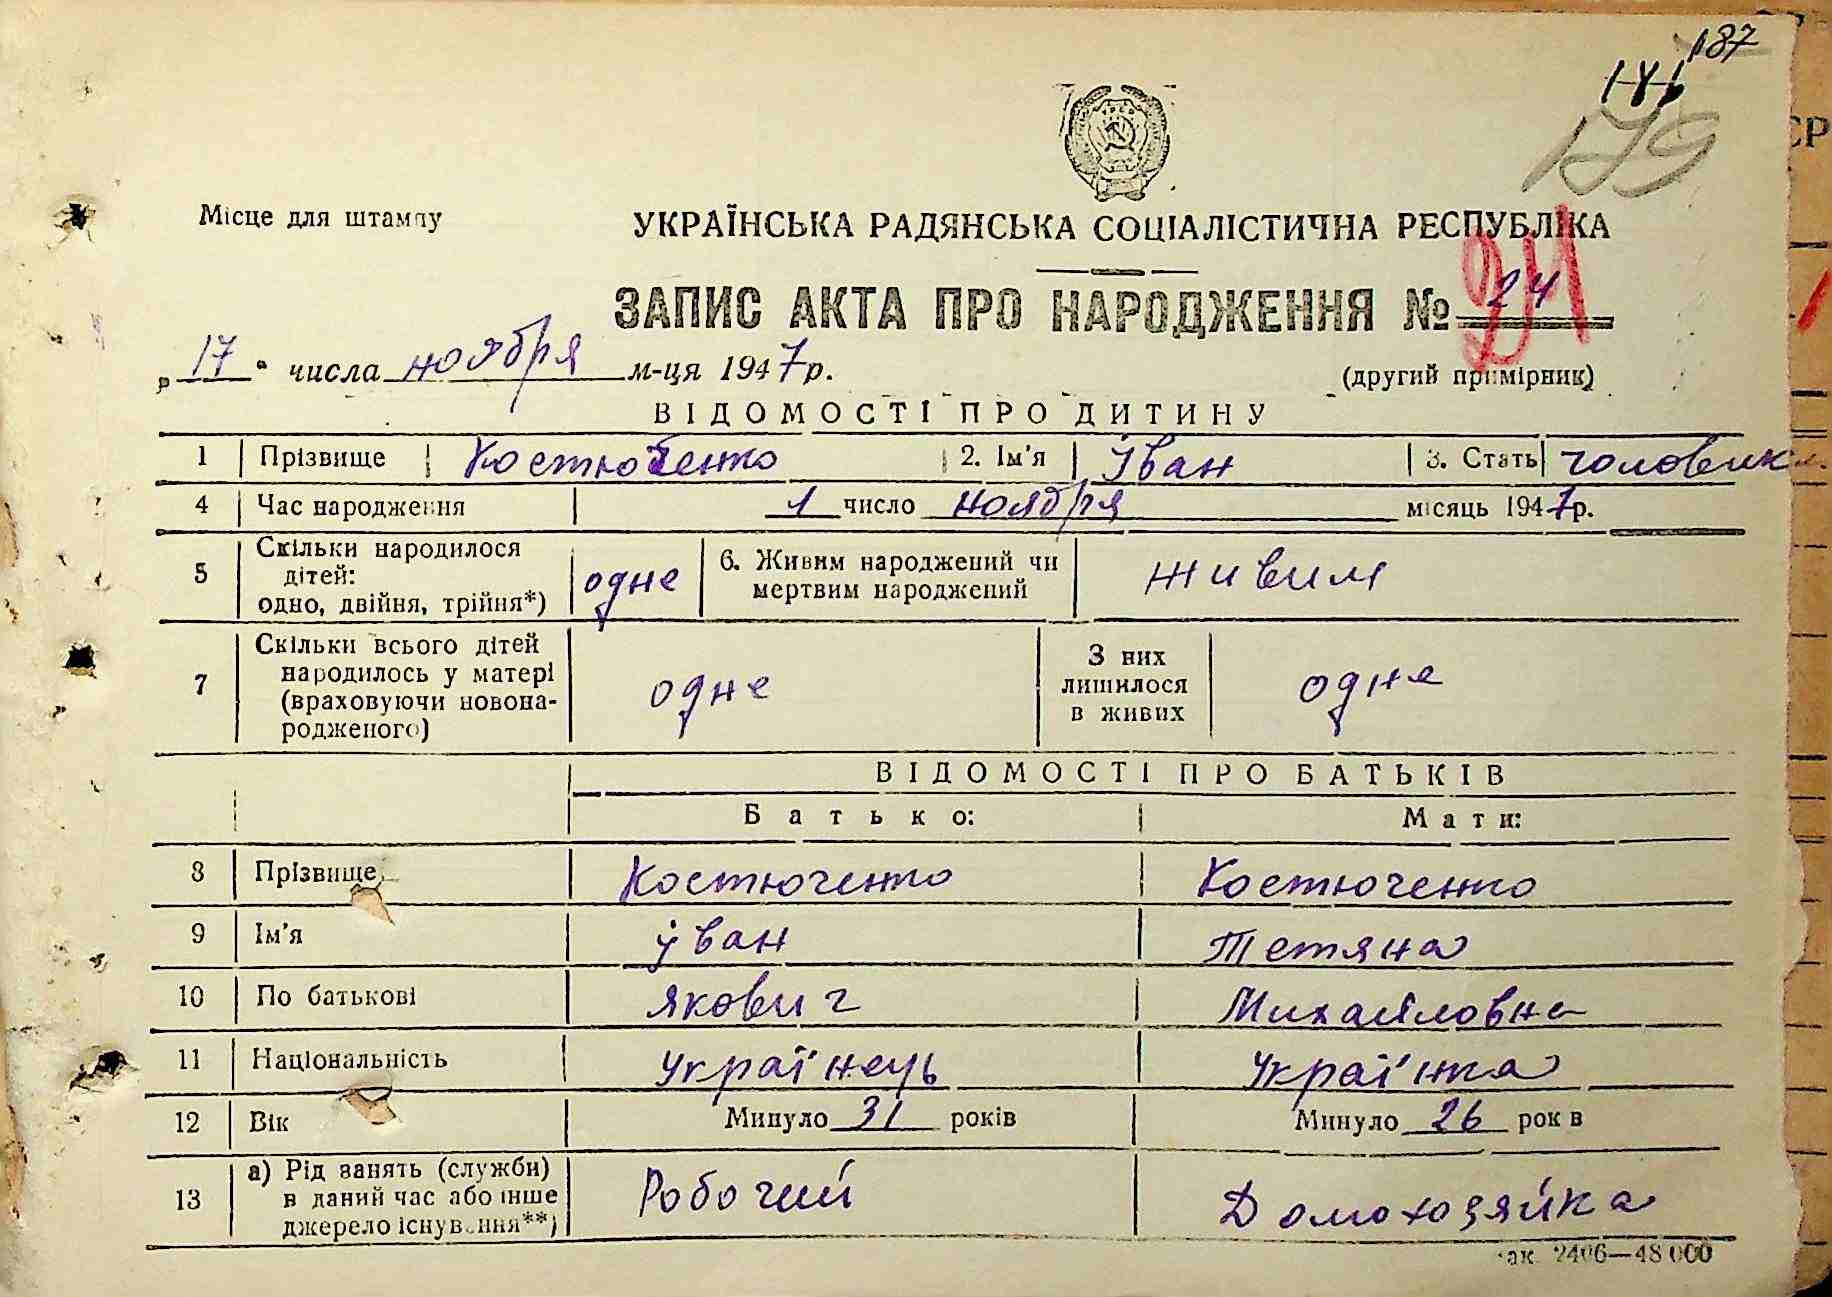 187
179
Місце для штампу
УКРАЇНСЬКА РАДЯНСЬКА СОЦІАЛІСТИЧНА РЕСПУБЛІКА
ЗАПИС АКТА ПРО НАРОДЖЕННЯ № 24
24
„17“ числа ноября м-ця 1947 р.
(другий примірник)
ВІДОМОСТІ ПРО ДИТИНУ
1 Прізвище Костюченко 2. Ім'я Іван 3. Стать чоловик
4 Час народження 1 число ноября місяць 1947 р.
5 Скільки народилося дітей: одно, двійня, трійня*) одне 6. Живим народжений чи мертвим народжений живим
7 Скільки всього дітей народилось у матері (враховуючи новонародженого) одне З них лишилося в живих одне
ВІДОМОСТІ ПРО БАТЬКІВ
Батько: Мати:
8 Прізвище Костюченко Костюченко
9 Ім'я Іван Тетяна
10 По батькові Якович Михайловна
11 Національність Українець Українка
12 Вік Минуло 31 років Минуло 26 років
13 а) Рід занять (служби) в даний час або інше джерело існування**) Робочий Домохозяйка
Зак. 2406—48 000